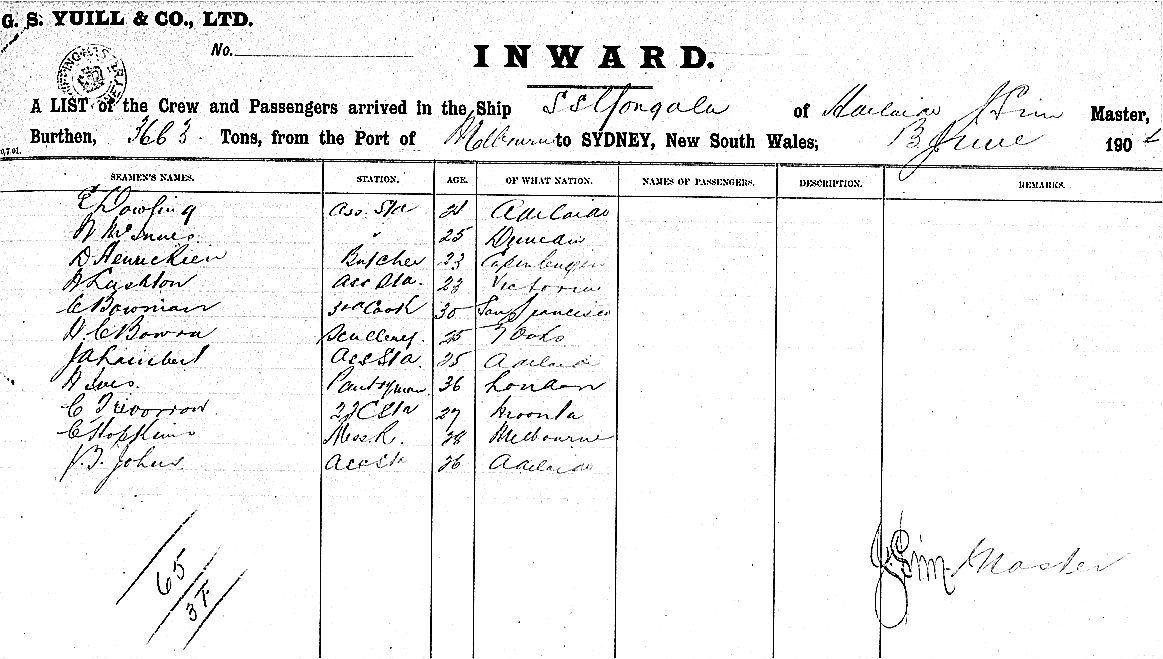 G. S. YUILL & CO., LTD.
No.
INWARD.
A LIST of the Crew and Passengers arrived in the Ship SS Yongala of Adelaide J Sim Master,
Burthen, 3663 Tons, from the Port of Melbourne to SYDNEY, New South Wales, 13 June 190
SEAMEN'S NAMES. STATION. AGE. OF WHAT NATION. NAMES OF PASSENGERS. DESCRIPTION. REMARKS.
Dowling Ass. Sta Adelaide
McInnes " 25
D Henricksen Butcher 23 Copenhagen
A Lashton Ass Sta. 23 Victoria
C Bowman 3rd Cook 30 San Francisco
Scullery 25 7 Oaks
J A Lambert Ass Sta 25 Adelaide
A Ives. Pantryman 36 London
C Trevorrow 27 Moonta
C Hopkins Mess R. 28 Melbourne
J. T. Johns Ass Sta 26 Adelaide
J Sim Master
65